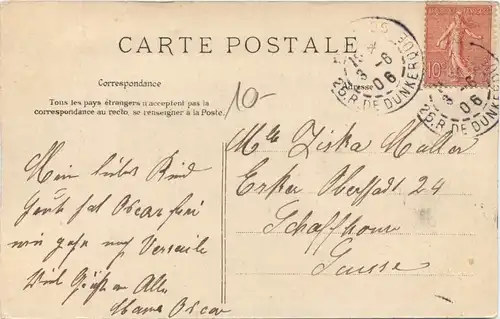 CARTE POSTALE
Correspondance
Adresse
Tous les pays étrangers n'acceptent pas la
correspondance au recto, se renseigner à la Poste.
10-
3-6
06
25.R.DE DUNKERQUE
3-6
06
25.R.DE DUNKERQUE
10
Mlle Ziska Maller
Erker Oberstadt 24
Schaffhouse
Suisse
Mein liebes Kind
Heute hat Oscar frei
wir gehen nach Versaille
Viel Grüße an Alle
Mama Oscar